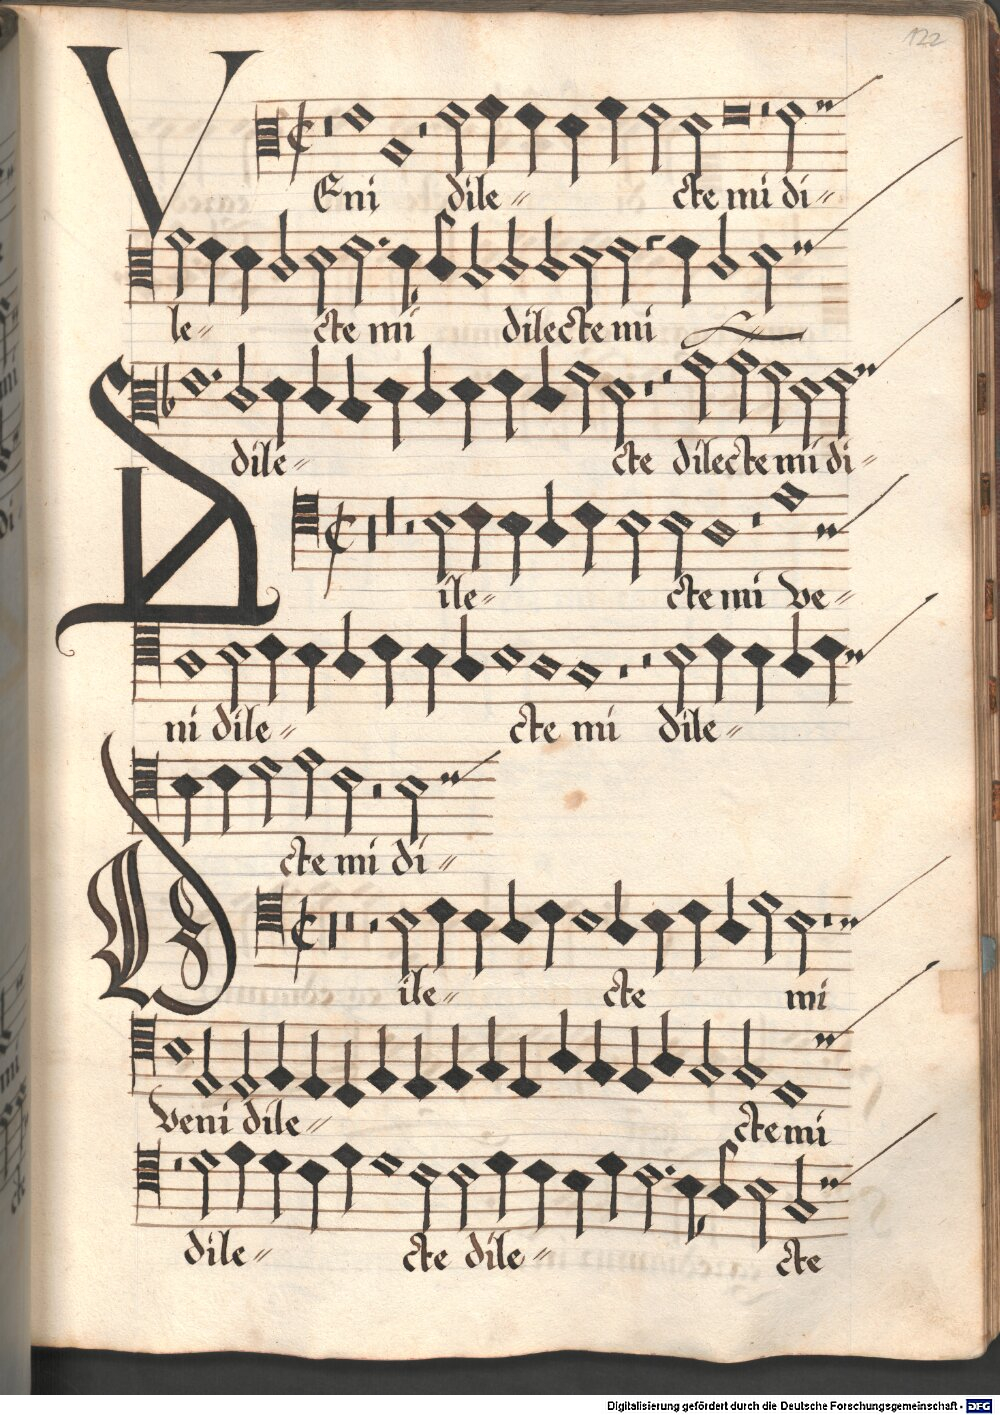 122
VEni dile〃 cte mi di〃
le〃 cte mi dilecte mi
dile〃 cte dilecte mi di〃
Dile〃 cte mi Ve〃
ni dile〃 cte mi dile〃
cte mi di〃
Dile〃 cte mi
Veni dile〃 cte mi
dile〃 cte dile〃 cte
Digitalisierung gefördert durch die Deutsche Forschungsgemeinschaft - DFG